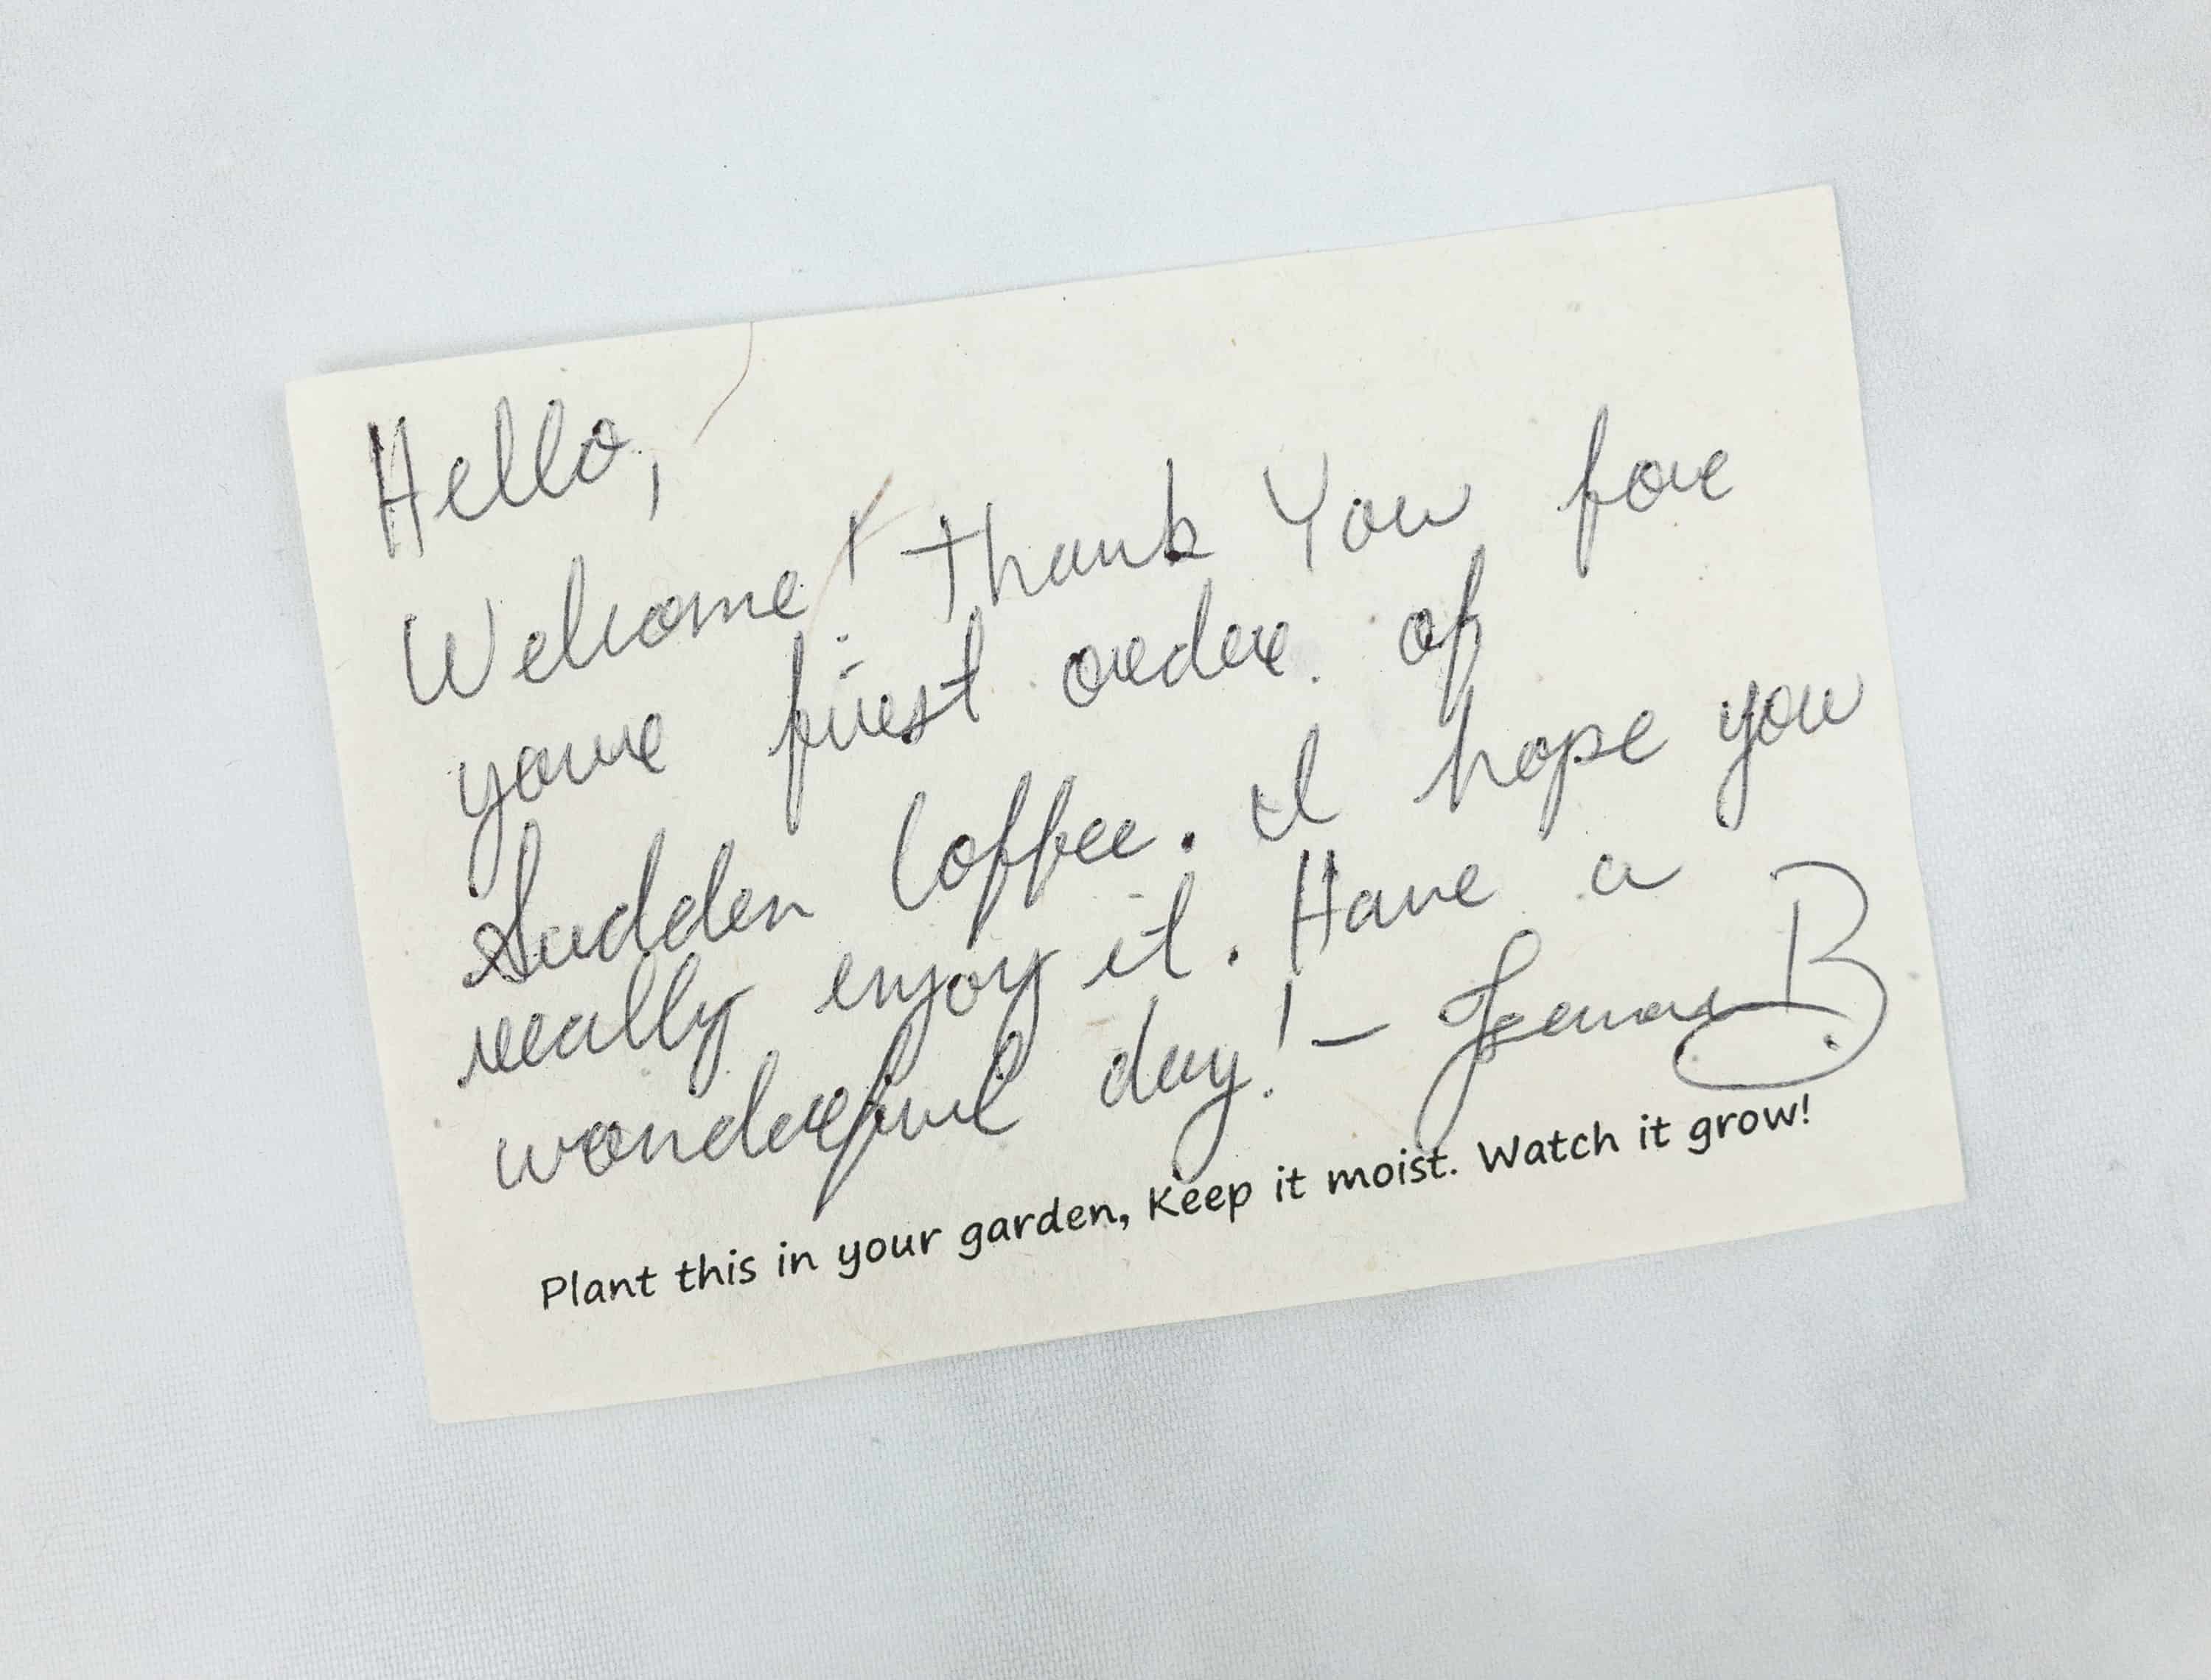 Hello,
Welcome! Thank You for
your first order of
Sudden Coffee. I hope you
really enjoy it. Have a
wonderful day! - B
Plant this in your garden, Keep it moist. Watch it grow!